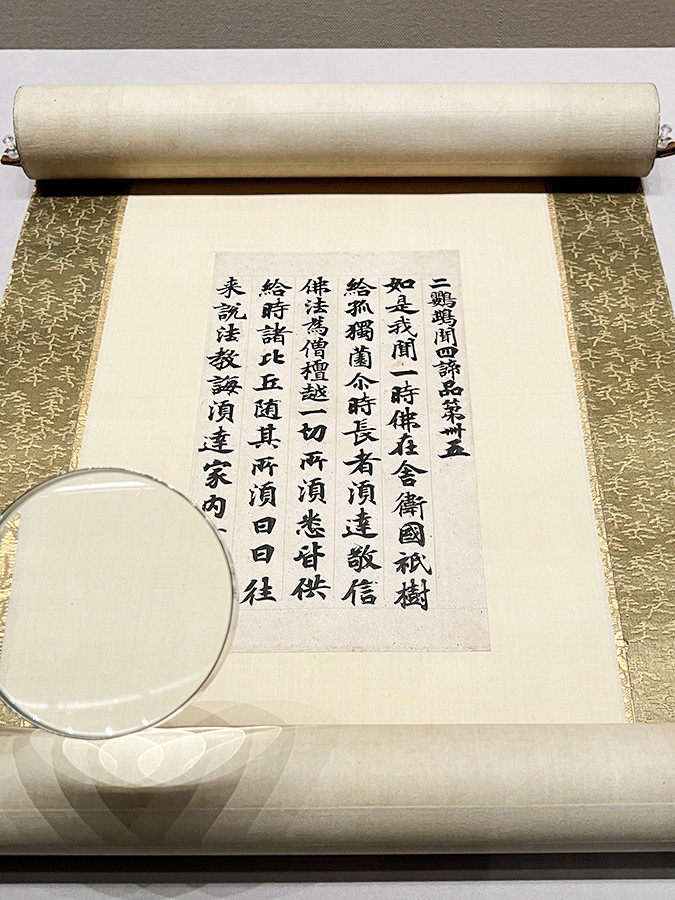 二鸚鵡聞四諦品第卅五
如是我聞一時佛在舍衛國祇樹
給孤獨園尒時長者湏達敬信
佛法為僧檀越一切所湏悉皆供
給時諸比丘随其所湏日日往
来說法教誨湏達家內